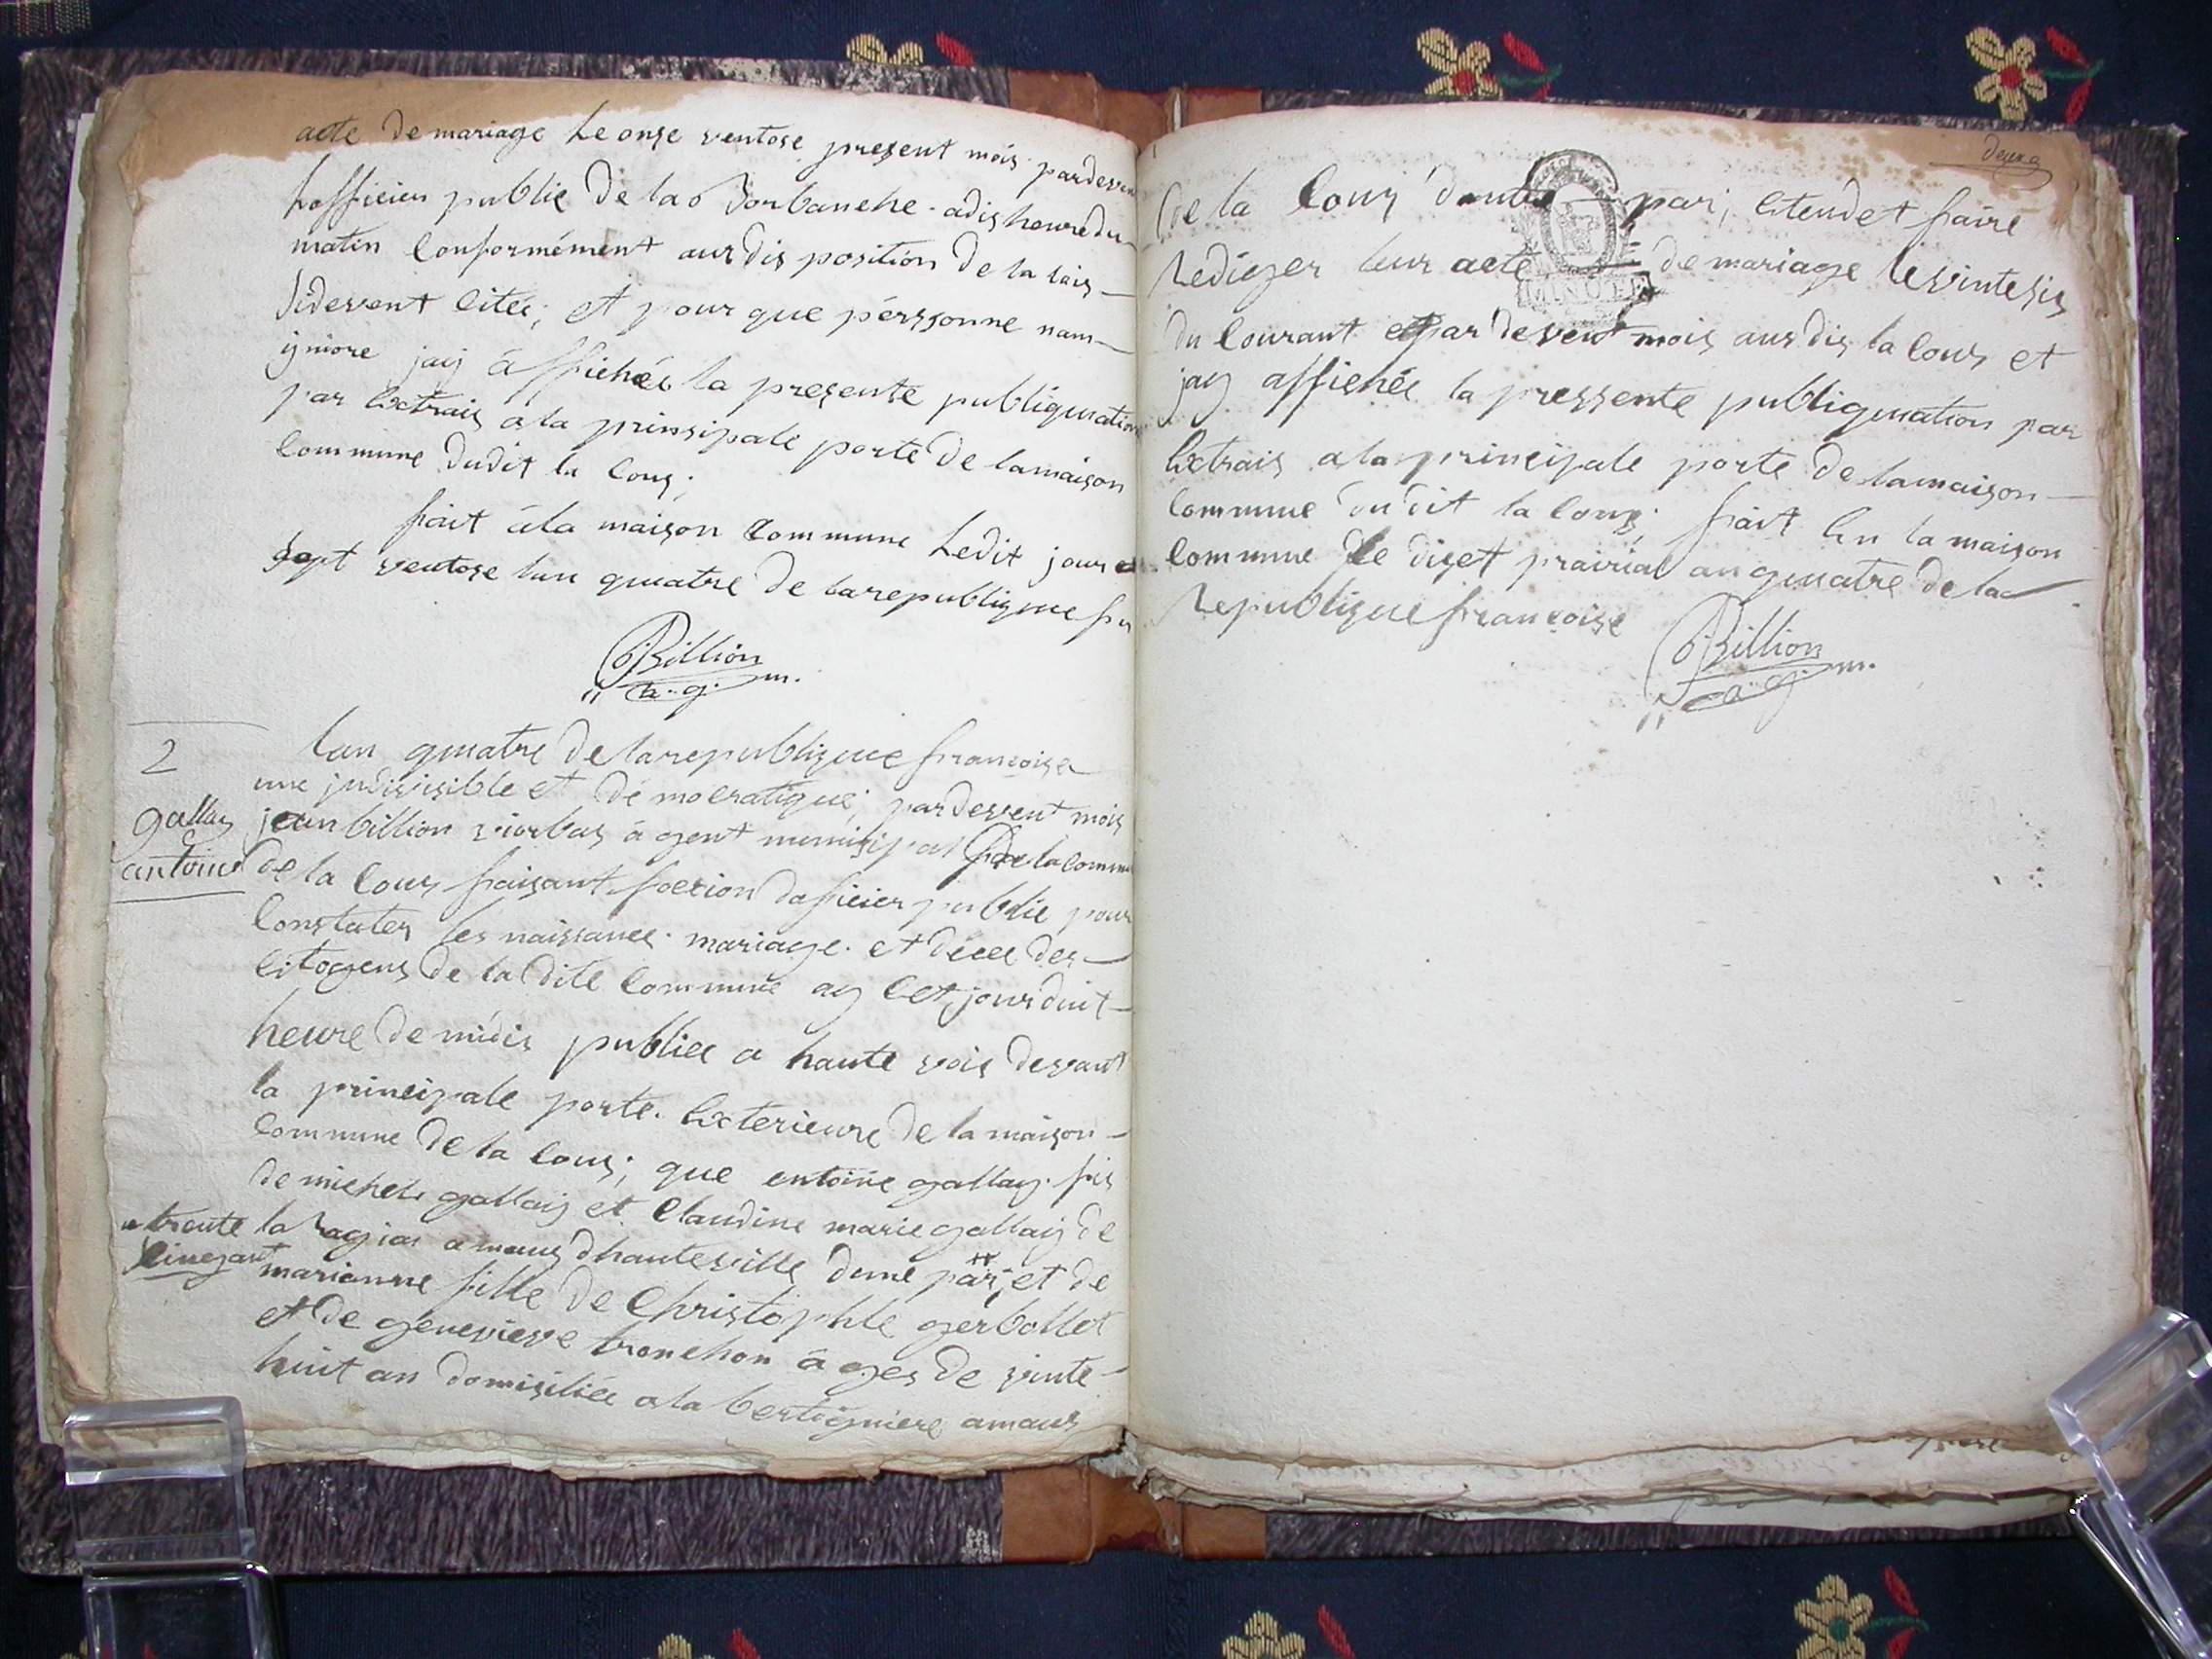 acte de mariage le onse ventose present mois pardeven
l'officier public de la Dorbanche adix heure du
matin conformément aux dis position de la lais
sidevent citée; et pour que pérssonne nam
ygniore jay à ffichée la presente publiquation
par Extrais a la prinsipale porte de lamaison
commune dudit la cour;
fait à la maison commune ledit jour
sept ventose lan quatre de la republique fr
Billion
a. g. m.
2
gallay
antoine
lan quatre de la republique francoise
une jndivisible et dé mocratique; pardevent mois
jean billion viorbas àgent munisipal de la commu
de la cour faisant foction daficier public pour
Constater les naissance. mariage. et décee des
citogens de la dite commune ay cet jourduit
heure de midis publiee a haute vois devant
la principale porte Exterieure de la maison
commune de la cour; que entoine gallay. fis
de michel gallaiy et Claudine marie gallaiy de
la ragias amaux dhauteville dune par, et de
trente
cinq an
marianne fille de Christophle gerbollet
et de genevieve tronchon àges de vinte
huit an domisiliée a la bertigniere amaux
deux
De la Cour dautre par; Etendet faire
Rediger leur acte de mariage le vintesix
du Courant et par devent mois aus dis la cour et
jay affichée la pressente publiquation par
Extrais a la principale porte de lamaison
commune du dit la cour; fait En la maison
commune le diset prairial an quatre de la
Republique francoise
Billion
a. g. m.
MINUTE